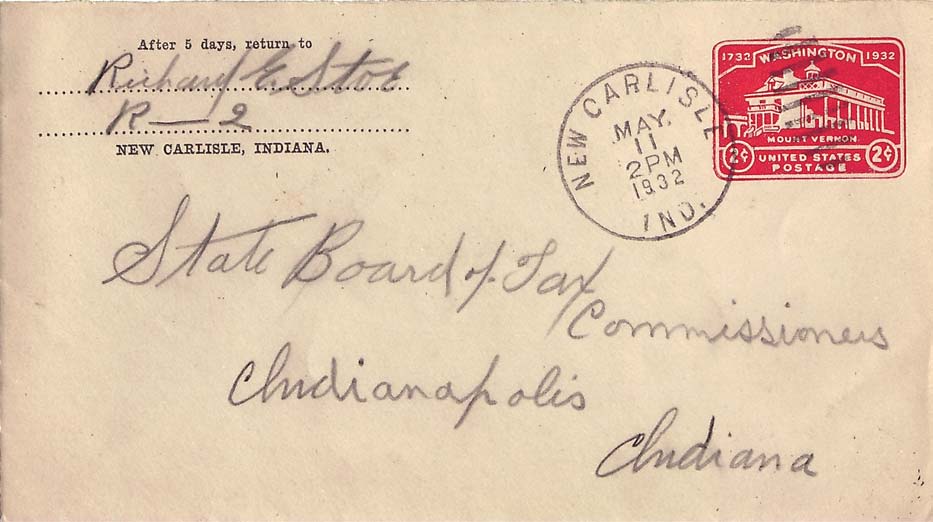 After 5 days, return to
Richard E StoE
R — 2
NEW CARLISLE, INDIANA.
NEW CARLISLE
MAY.
11
2PM
1932
IND.
1732 WASHINGTON 1932
MOUNT VERNON
2¢ UNITED STATES 2¢
POSTAGE
State Board of Tax
Commissioners
Indianapolis
Indiana